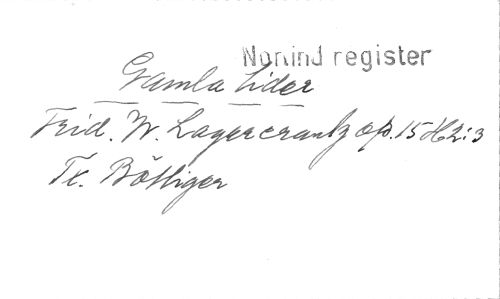 Norind register
Gamla tider
Frid. W. Lagercrantz op. 15 H2:3
Tx. Böttiger